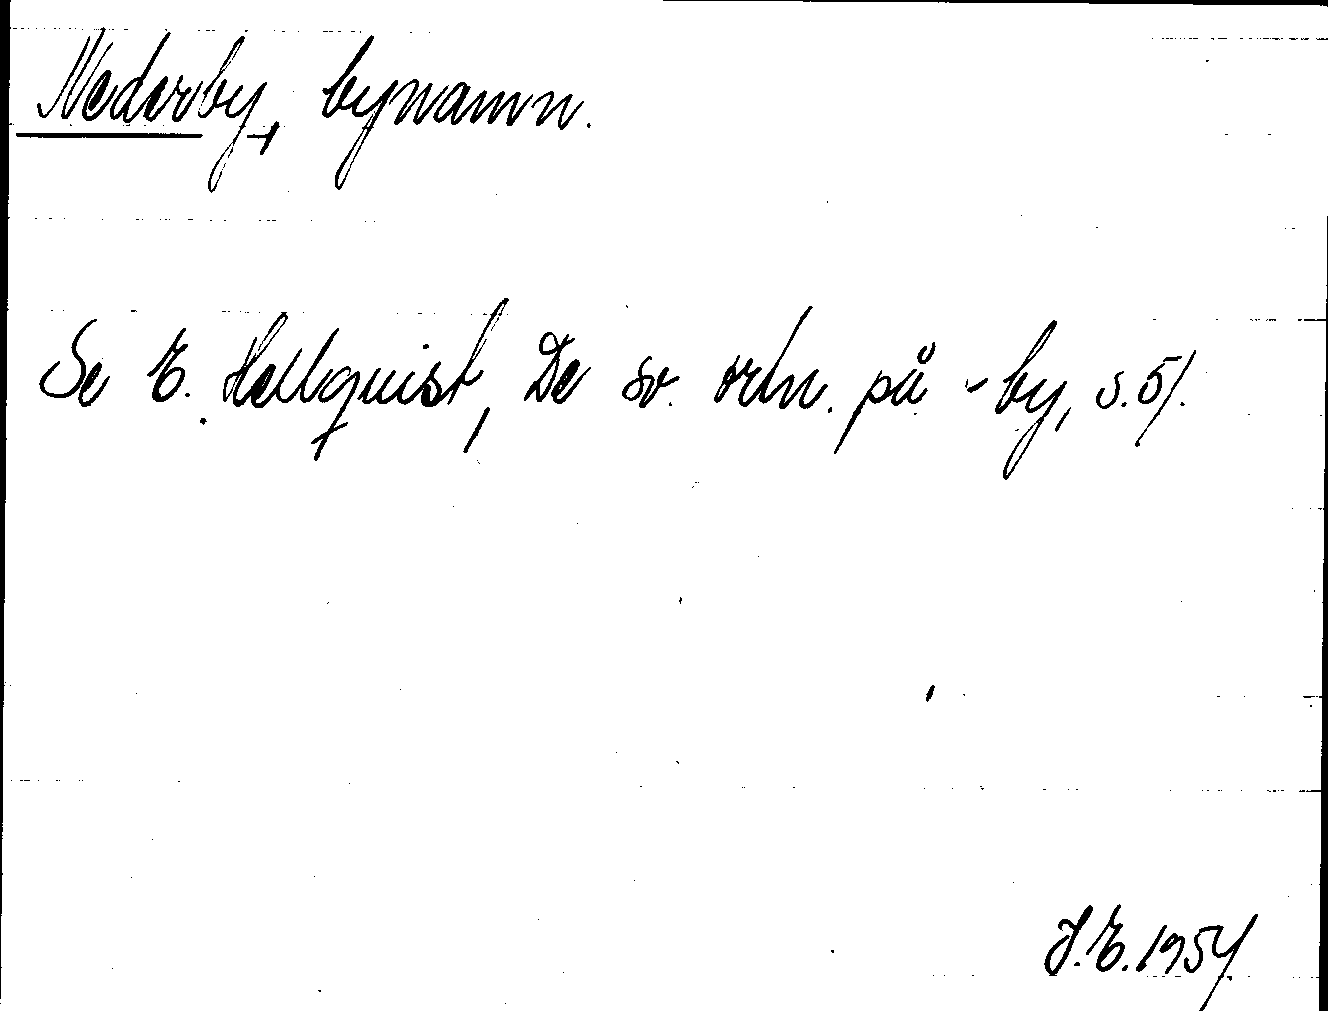 Nederby, bynamn.
Se E. Hellquist, De sv. ortn. på -by, s. 51.
J.E. 1954